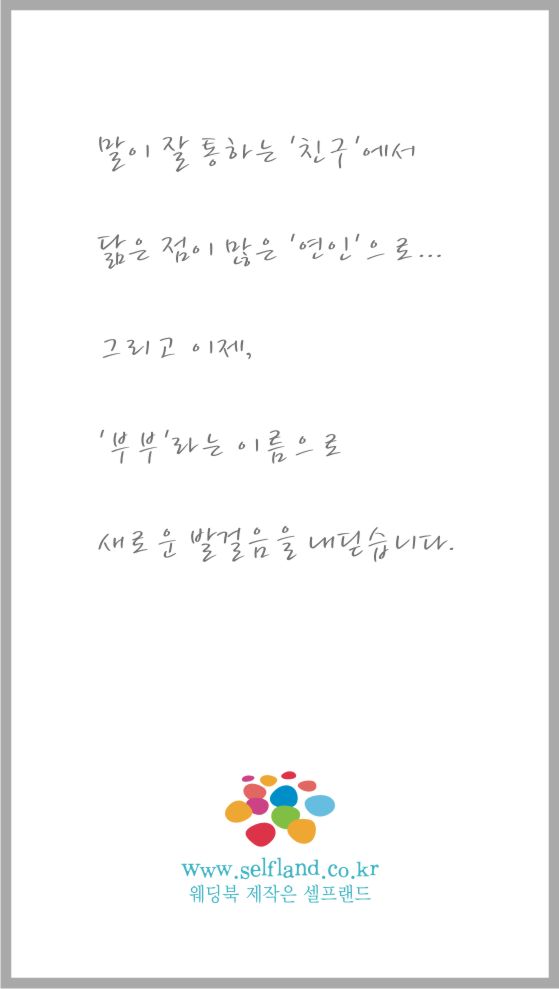 말이 잘 통하는 '친구'에서
닮은 점이 많은 '연인'으로...
그리고 이제,
'부부'라는 이름으로
새로운 발걸음을 내딛습니다.
www.selfland.co.kr
웨딩북 제작은 셀프랜드